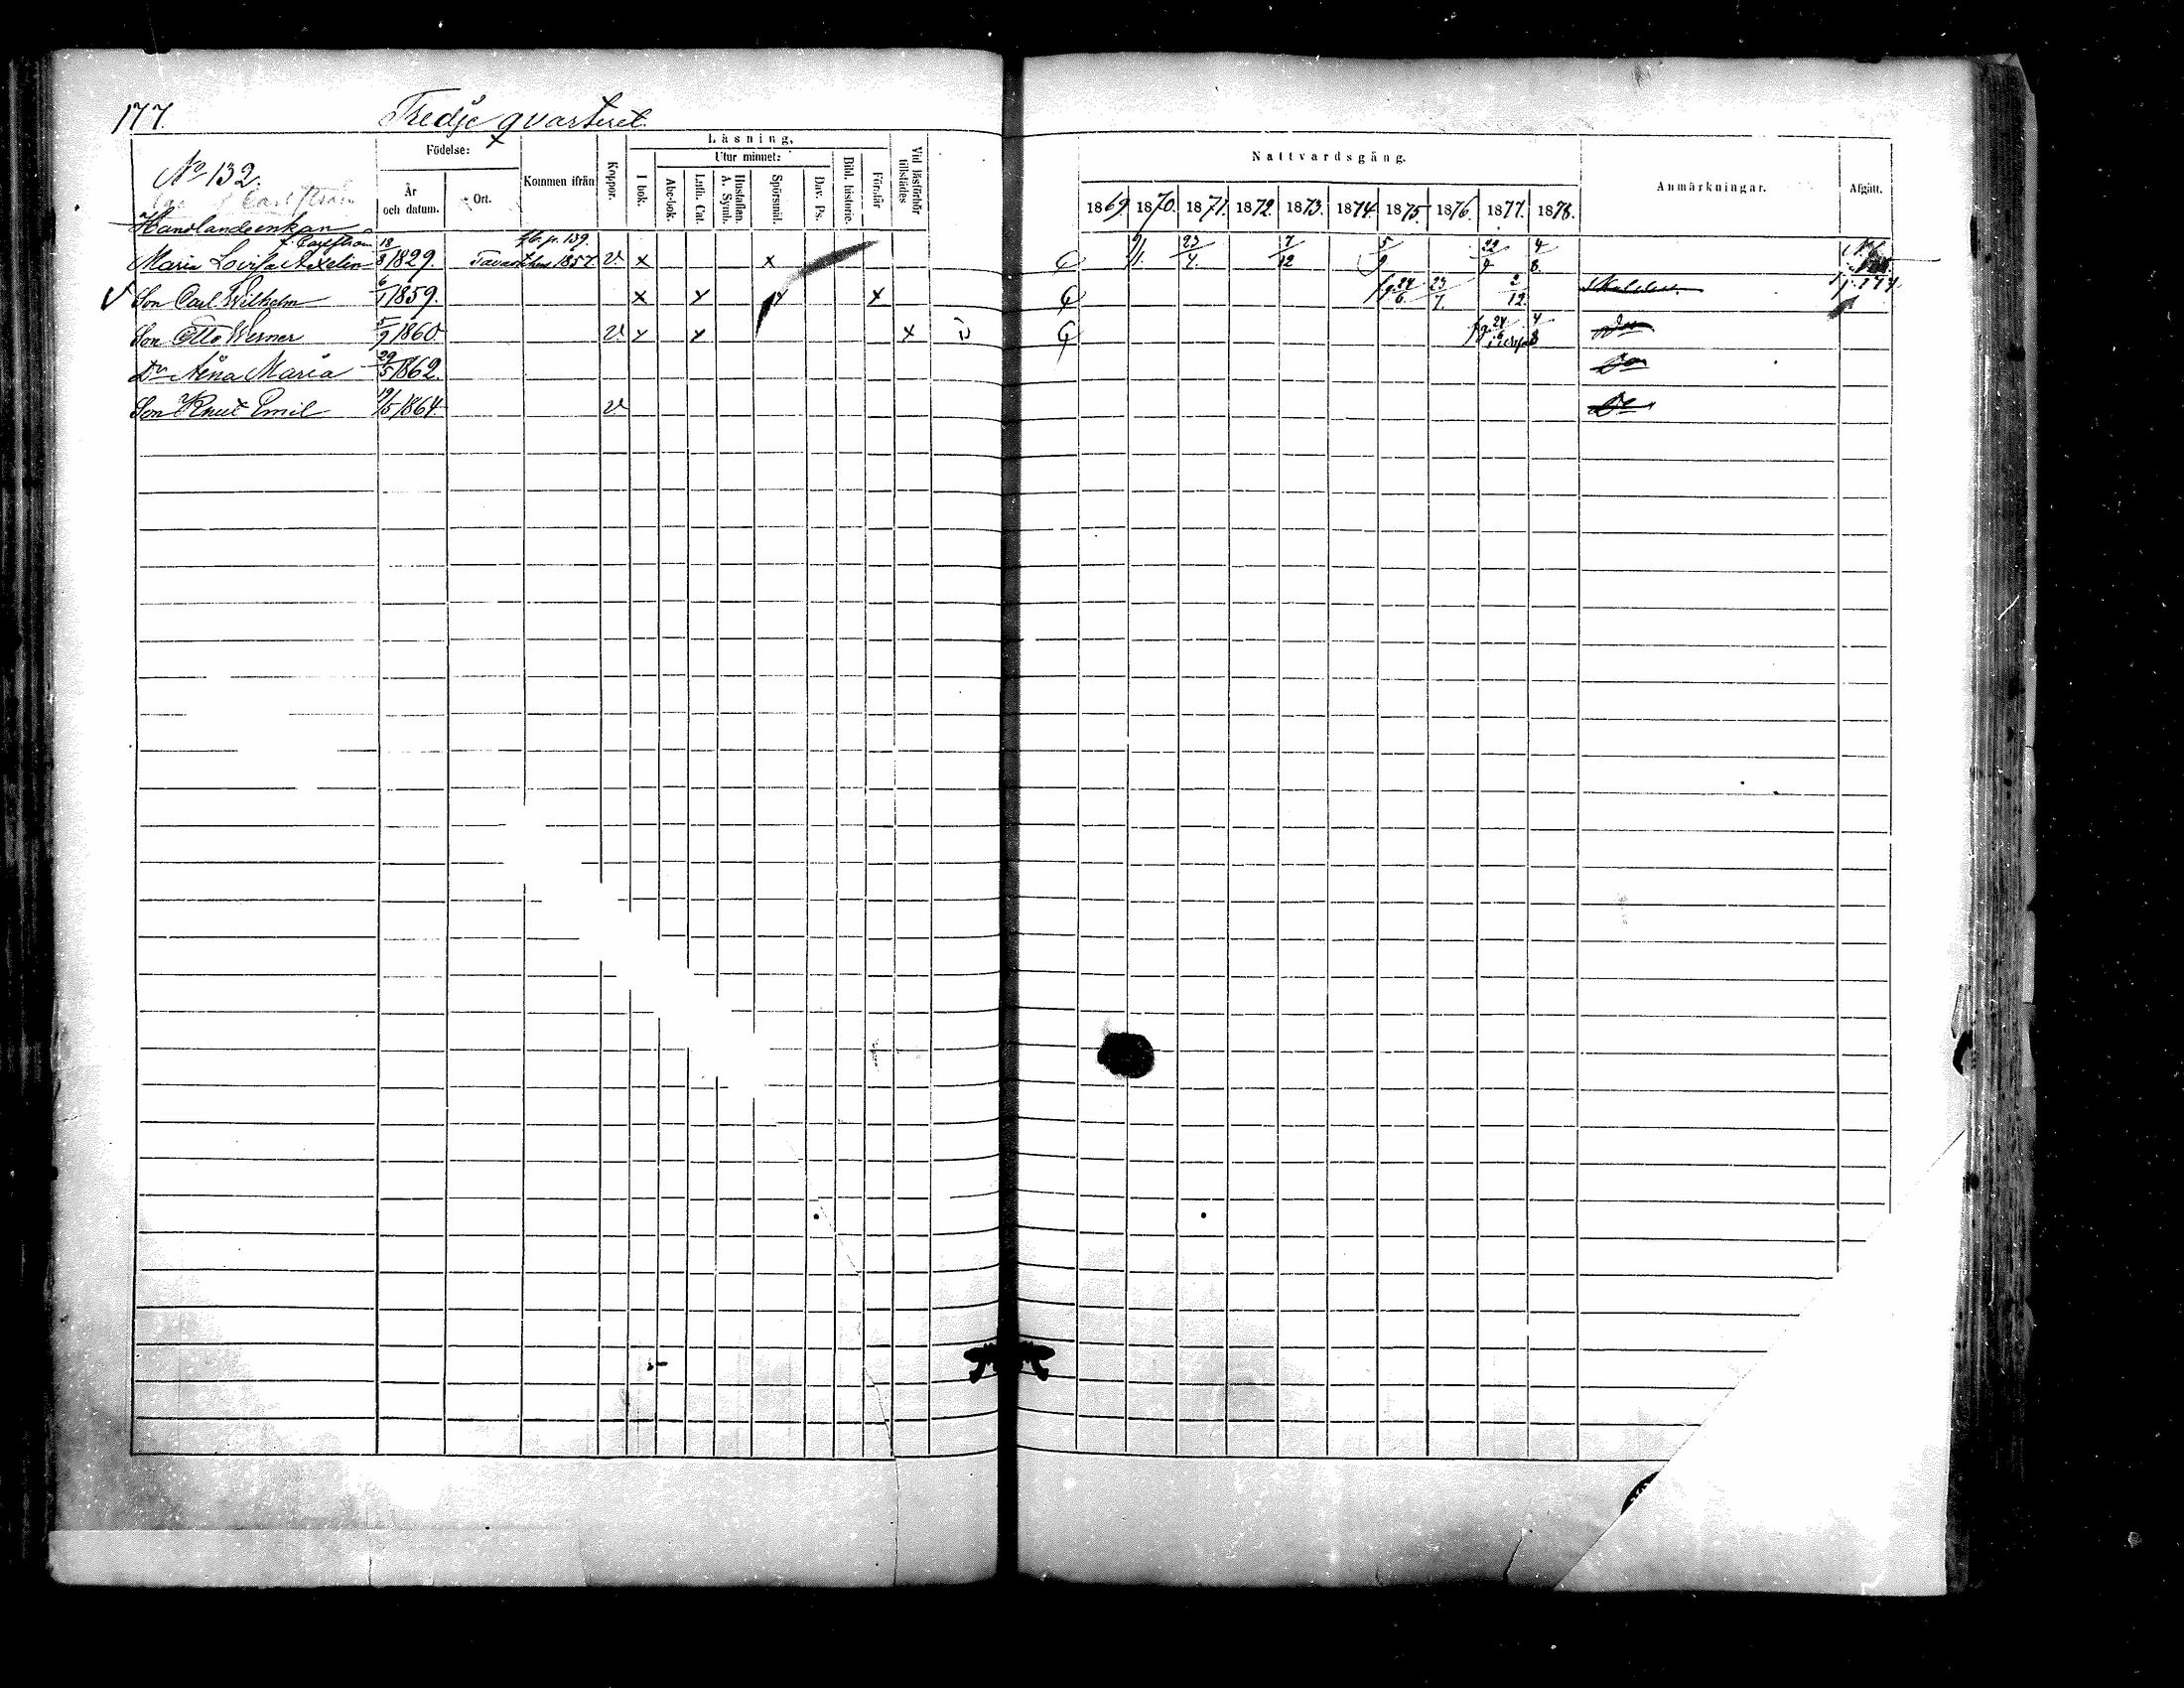 177. Tredje quarteret.
No 132.
Födelse:
År och datum.
Ort.
Kommen ifrån
Koppor.
Läsning.
I bok.
Utur minnet:
Abc-bok.
Luth. Cat.
Hustaflan. A. Symb.
Spörsmål.
Dav. Ps.
Bibl. historie.
Förstår
Vid läsförhör tillstädes
Nattvardsgång.
1869. 1870. 1871. 1872. 1873. 1874. 1875. 1876. 1877. 1878.
Anmärkningar.
Afgått.
Handlandeenkan
f. Carlström
Maria Lovisa Axelin 18/8 1829. Tavastehus 1857. fb. p. 139. v x x 23/4. 7/12 5/9 22/4 4/8.
Son Carl Wilhelm 6/1 1859. x x x x 24/6 23/7. 2/12.
Son Otto Werner 5/9 1860. v x x x 24/6 4/8
Dr Alma Maria 29/5 1862. Do
Son Knut Emil 19/5 1864. v Do